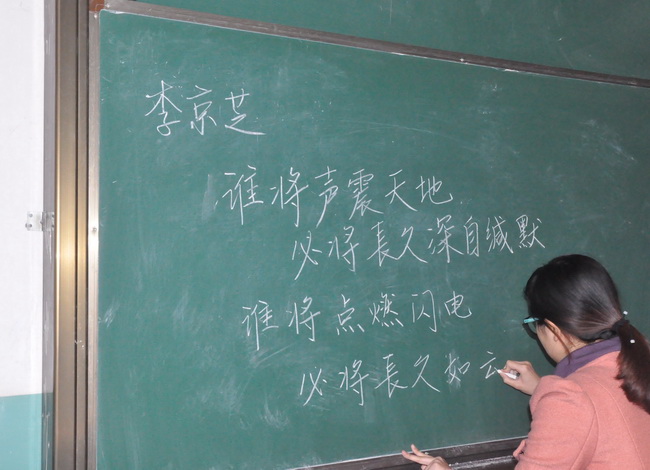 李京芝
谁将声震天地
必将長久深自缄默
谁将点燃闪电
必将長久如云